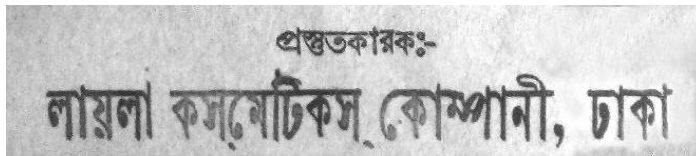 প্রস্তুতকারক:-
লায়লা কস্‌মেটিকস্ কোম্পানী, ঢাকা